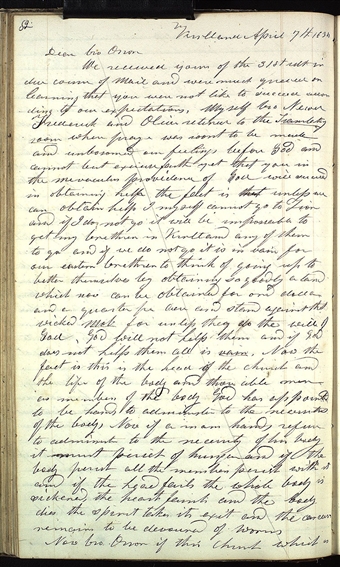 82
Kirtland April 7th 1834
Dear bro Orson
We received yours of the 31st ult in
due course of mail and were much grieved on
learning that you were not like to succeed accor
ding to our expectations, Myself bro Newel
Frederick and Oliver retired to the translating
room where prayer was wont to be made
and unbosomed our feelings before God and
cannot but exercise faith yet that you in
the miraculous providence of God will succeed
in obtaining help the fact is that unless we
can obtain help I myself cannot go to Zion
and if I do not go it will be impossible to
get my brethren in Kirtland any of them
to go and if we do not go it is in vain for
our eastern brethren to think of going up to
better themselves by obtaining so goodly a land
which now can be obtained for one dollar
and a quarter pr acre and stand against that
wicked mob for unless they do the will of
God, God will not help them and if God
does not help them all is vain, Now the
fact is this is the head of the church and
the life of the body and those able men
as members of the body God has appointed
to be hands to administer to the necessities
of the body, Now if a mans hand refuse
to administer to the necessity of his body
it must perish of hunger and if the
body perish all the members perish with it
and if the head fail the whole body is
sickened the heart faints and the body
dies the spirit takes its exit and the carcase
remains to be devoured of worms
Now bro Orson if this church which is